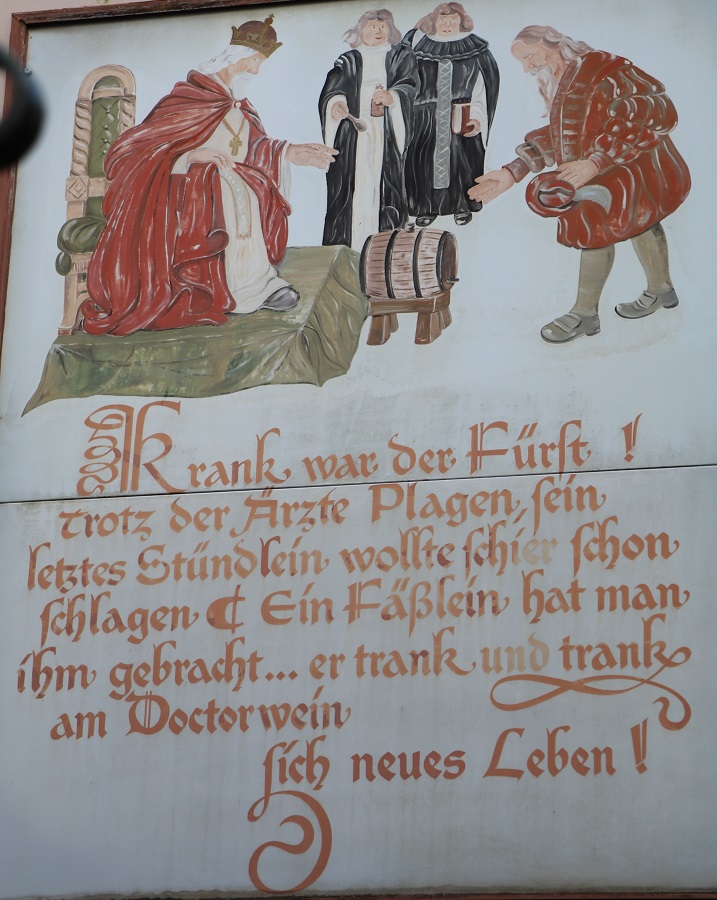 Krank war der Fürst !
trotz der Ärzte Plagen, sein
letztes Stündlein wollte schier schon
schlagen ₵ Ein Fäßlein hat man
ihm gebracht... er trank und trank
am Doctorwein
sich neues Leben !